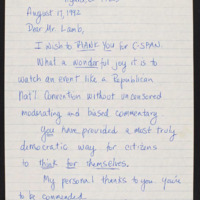 August 17, 1992
Dear Mr. Lamb,
I wish to THANK YOU for C-SPAN.
What a wonderful joy it is to
watch an event like a Republican
Nat'l Convention without uncensored
moderating and biased commentary
You have provided a most truly
democratic way for citizens
to think for themselves.
My personal thanks to you. you're
to be commended.